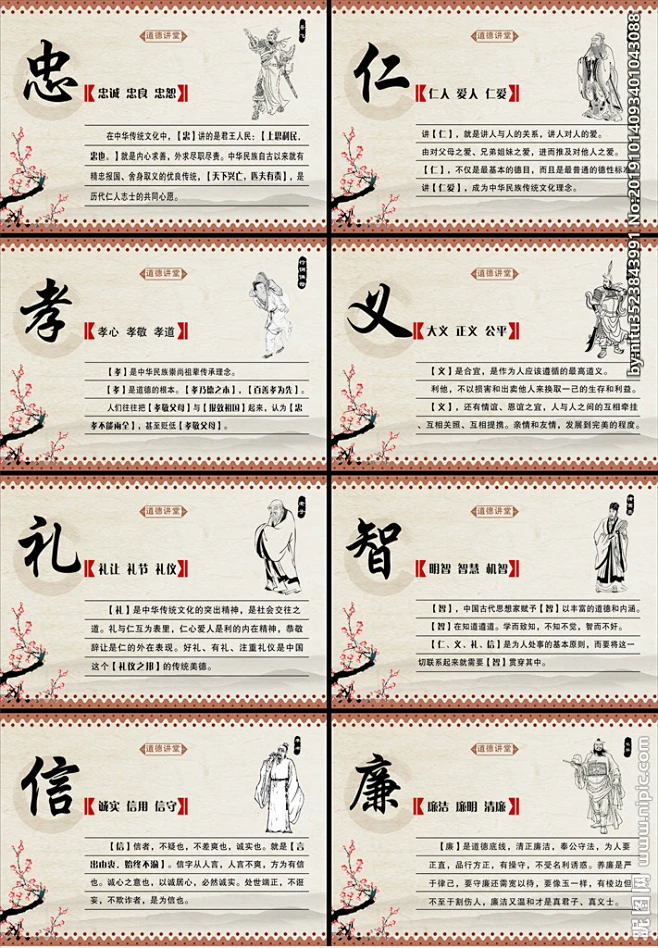 道德讲堂
忠
忠诚 忠良 忠恕
在中华传统文化中，【忠】讲的是君王人民：【上思利民，
忠也。】就是内心求善，外求尽职尽责。中华民族自古以来就有
精忠报国、舍身取义的优良传统，【天下兴亡，匹夫有责】，是
历代仁人志士的共同心愿。
道德讲堂
仁
仁人 爱人 仁爱
讲【仁】，就是讲人与人的关系，讲人对人的爱。
由对父母之爱、兄弟姐妹之爱，进而推及对他人之爱。
【仁】，不仅是最基本的德目，而且是最普通的德性标准
讲【仁爱】，成为中华民族传统文化理念。
道德讲堂
孝
孝心 孝敬 孝道
【孝】是中华民族崇尚祖辈传承理念。
【孝】是道德的根本。【孝乃德之本】，【百善孝为先】。
人们往往把【孝敬父母】与【报效祖国】起来，认为【忠
孝不能两全】，甚至贬低【孝敬父母】。
道德讲堂
义
大义 正义 公平
【义】是合宜，是作为人应该遵循的最高道义。
利他，不以损害和出卖他人来换取一己的生存和利益。
【义】，还有情谊、恩谊之宜，人与人之间的互相牵挂
、互相关照、互相提携。亲情和友情，发展到完美的程度。
道德讲堂
礼
礼让 礼节 礼仪
老子
【礼】是中华传统文化的突出精神，是社会交往之
道。礼与仁互为表里，仁心爱人是利的内在精神，恭敬
辞让是仁的外在表现。好礼、有礼、注重礼仪是中国
这个【礼仪之邦】的传统美德。
道德讲堂
智
明智 智慧 机智
【智】，中国古代思想家赋予【智】以丰富的道德和内涵。
【智】在知道遵道。学而致知，不知不觉，智而不好。
【仁、义、礼、信】是为人处事的基本原则，而要将这一
切联系起来就需要【智】贯穿其中。
道德讲堂
信
诚实 信用 信守
【信】信者，不疑也，不差爽也，诚实也。就是【言
出由衷、始终不渝】。信字从人言，人言不爽，方为有信
也。诚心之意也，以诚居心，必然诚实。处世端正，不诳
妄，不欺诈者，是为信也。
道德讲堂
廉
廉洁 廉明 清廉
【廉】是道德底线，清正廉洁，奉公守法，为人要
正直，品行方正，有操守，不受名利诱惑。养廉是严
于律己，要守廉还需宽以待，要像玉一样，有棱边但
不至于割伤人，廉洁又温和才是真君子、真义士。
by:nitu3523843991 No:20191014093401043088
昵图网 www.nipic.com